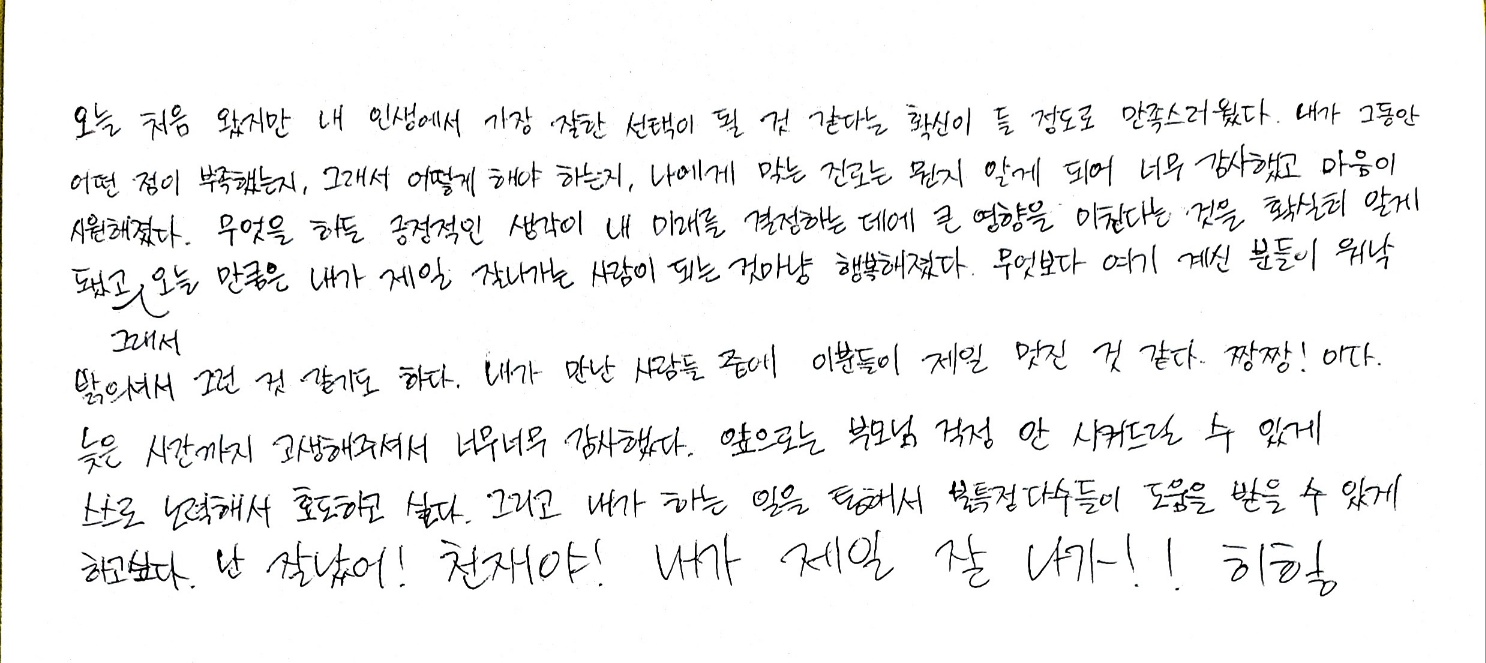 오늘 처음 왔지만 내 인생에서 가장 잘한 선택이 될 것 같다는 확신이 들 정도로 만족스러웠다. 내가 그동안
어떤 점이 부족했는지, 그래서 어떻게 해야 하는지, 나에게 맞는 진로는 뭔지 알게 되어 너무 감사했고 마음이
시원해졌다. 무엇을 하든 긍정적인 생각이 내 미래를 결정하는 데에 큰 영향을 미친다는 것을 확실히 알게
됐고 오늘 만큼은 내가 제일 잘나가는 사람이 되는 것마냥 행복해졌다. 무엇보다 여기 계신 분들이 워낙
그래서
밝으셔서 그런 것 같기도 하다. 내가 만난 사람들 중에 이분들이 제일 멋진 것 같다. 짱짱! 이다.
늦은 시간까지 고생해주셔서 너무너무 감사했다. 앞으로는 부모님 걱정 안 시켜드릴 수 있게
스스로 노력해서 효도하고 싶다. 그리고 내가 하는 일을 통해서 불특정다수들이 도움을 받을 수 있게
하고싶다. 난 잘났어! 천재야! 내가 제일 잘 나가~!! 히힣